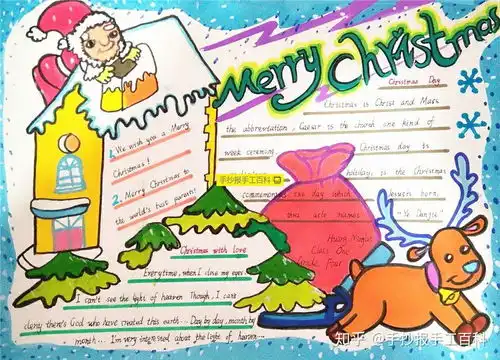 Merry Christmas
Christmas Day
Christmas is Christ and Mass
the abbreviation, Caesar is the church one kind of
week ceremony. Christmas day is
holiday, is the Christmas
commemorates the day which Jesus born,
Huang Mingke
Class One
Grade Four
1. We wish you a Merry
Christmas!
2. Merry Christmas to
the world's best parents!
手抄报手工百科
Christmas with love
Everytime, when I close my eyes
I can't see the light of heaven Though, I can't
deny there's God who have created this earth... Day by day, month by
month... I'm very interested about the light of heaven...
知乎 @手抄报手工百科